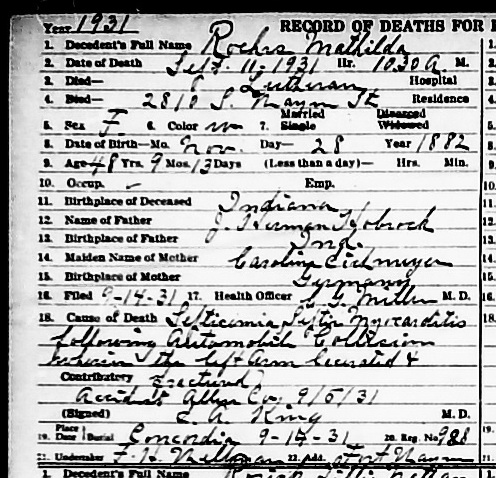 Year 1931 RECORD OF DEATHS FOR
1. Decedent's Full Name Roehrs Mathilda
2. Date of Death Sept. 11-1931 Hr. 10.30 A. M.
3. Died— Lutheran Hospital
4. Died— 2810 S. Wayne St Residence
5. Sex F 6. Color w 7. Married Single Divorced Widowed
8. Date of Birth—Mo. Nov. Day— 28 Year 1882
9. Age 48 Yrs. 9 Mos. 13 Days (Less than a day)— Hrs. Min.
10. Occup. — Emp.
11. Birthplace of Deceased Indiana
12. Name of Father J. Herman
13. Birthplace of Father Ind.
14. Maiden Name of Mother Caroline
15. Birthplace of Mother Germany
16. Filed 9-14-31 17. Health Officer G. Miller M. D.
18. Cause of Death Septicemia Septic Myocarditis
following Automobile Collision
wherein the left Arm lacerated &
Contributory fractured)
Accident Allen Co, 9/5/31
(Signed) E. A. King M. D.
19. Place Date Burial Concordia 9-14-31 20. Reg. No 988
21. Undertaker F. H. 22. Add. Fort Wayne
1. Decedent's Full Name